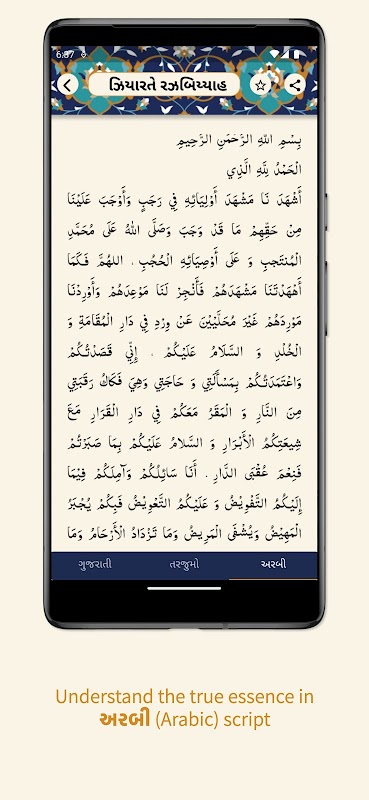 6:37
ઝિયારતે રઝબિય્યાહ
بِسْمِ اللهِ الرَّحْمَنِ الرَّحِيمِ
الْحَمْدُ لِلَّهِ الَّذِي
أَشْهَدَ نَا مَشْهَدَ أَوْلِيَائِهِ فِي رَجَبٍ وَأَوْجَبَ عَلَيْنَا
مِنْ حَقِّهِمْ مَا قَدْ وَجَبَ وَصَلَّى اللهُ عَلَى مُحَمَّدٍ
الْمُنْتَجبِ وَ عَلَى أَوْصِيَائِهِ الْحُجُبِ . اللهُمَّ فَكَمَا
أَهْهَدْتَنَا مَشْهَدَهُمْ فَأَنْجِزْ لَنَا مَوْعِدَهُمْ وَأَوْرِدْنَا
مَوْرِدَهُمْ غَيْرَ مُحَلَّيْيْنَ عَنْ وِرْدٍ فِي دَارِ الْمُقَامَةِ وَ
الْخُلْدِ وَ السَّلَامُ عَلَيْكُمْ . إِنِّي قَصَدْتُكُمْ
وَاعْتَمَدْتُكُمْ بِمَسْأَلَتِي وَ حَاجَتِي وَهِيَ فَكَاكُ رَقَبَتِي
مِنَ النَّارِ وَ الْمَقَرُ مَعَكُمْ فِي دَارِ الْقَرَارِ مَعَ
شِيعَتِكُمُ الْأَبْرَارِ وَ السَّلَامُ عَلَيْكُمْ بِمَا صَبَرْتُمْ
فَنِعْمَ عُقْبَى الدَّارِ . أَنَا سَائِلُكُمْ وَآمِلُكُمْ فِيْمَا
إِلَيْكُمُ التَّفْوِيْضُ وَ عَلَيْكُمُ التَّعْوِيضُ فَبِكُمْ يُجْبَرُ
الْمَهِيْضُ وَيُشْفَى الْمَرِيضُ وَمَا تَزْدَادُ الْأَرْحَامُ وَمَا
ગુજરાતી
તરજુમો
અરબી
Understand the true essence in
અરબી (Arabic) script